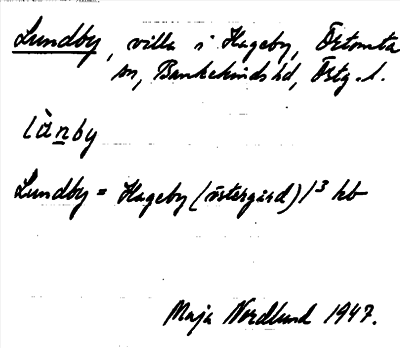 Lundby, villa i Hageby, Örtomta
sn, Bankekinds hd, Östg. l.
lùn̲by
Lundby = Hageby (östergård) 1³ hb
Maja Nordlund 1947.